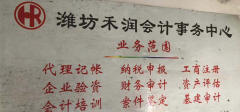 潍坊禾润会计事务中心
业务范围
代理记帐 纳税申报 工商注册
企业验资 财务审计 资产评估
会计培训 案件鉴定 基建